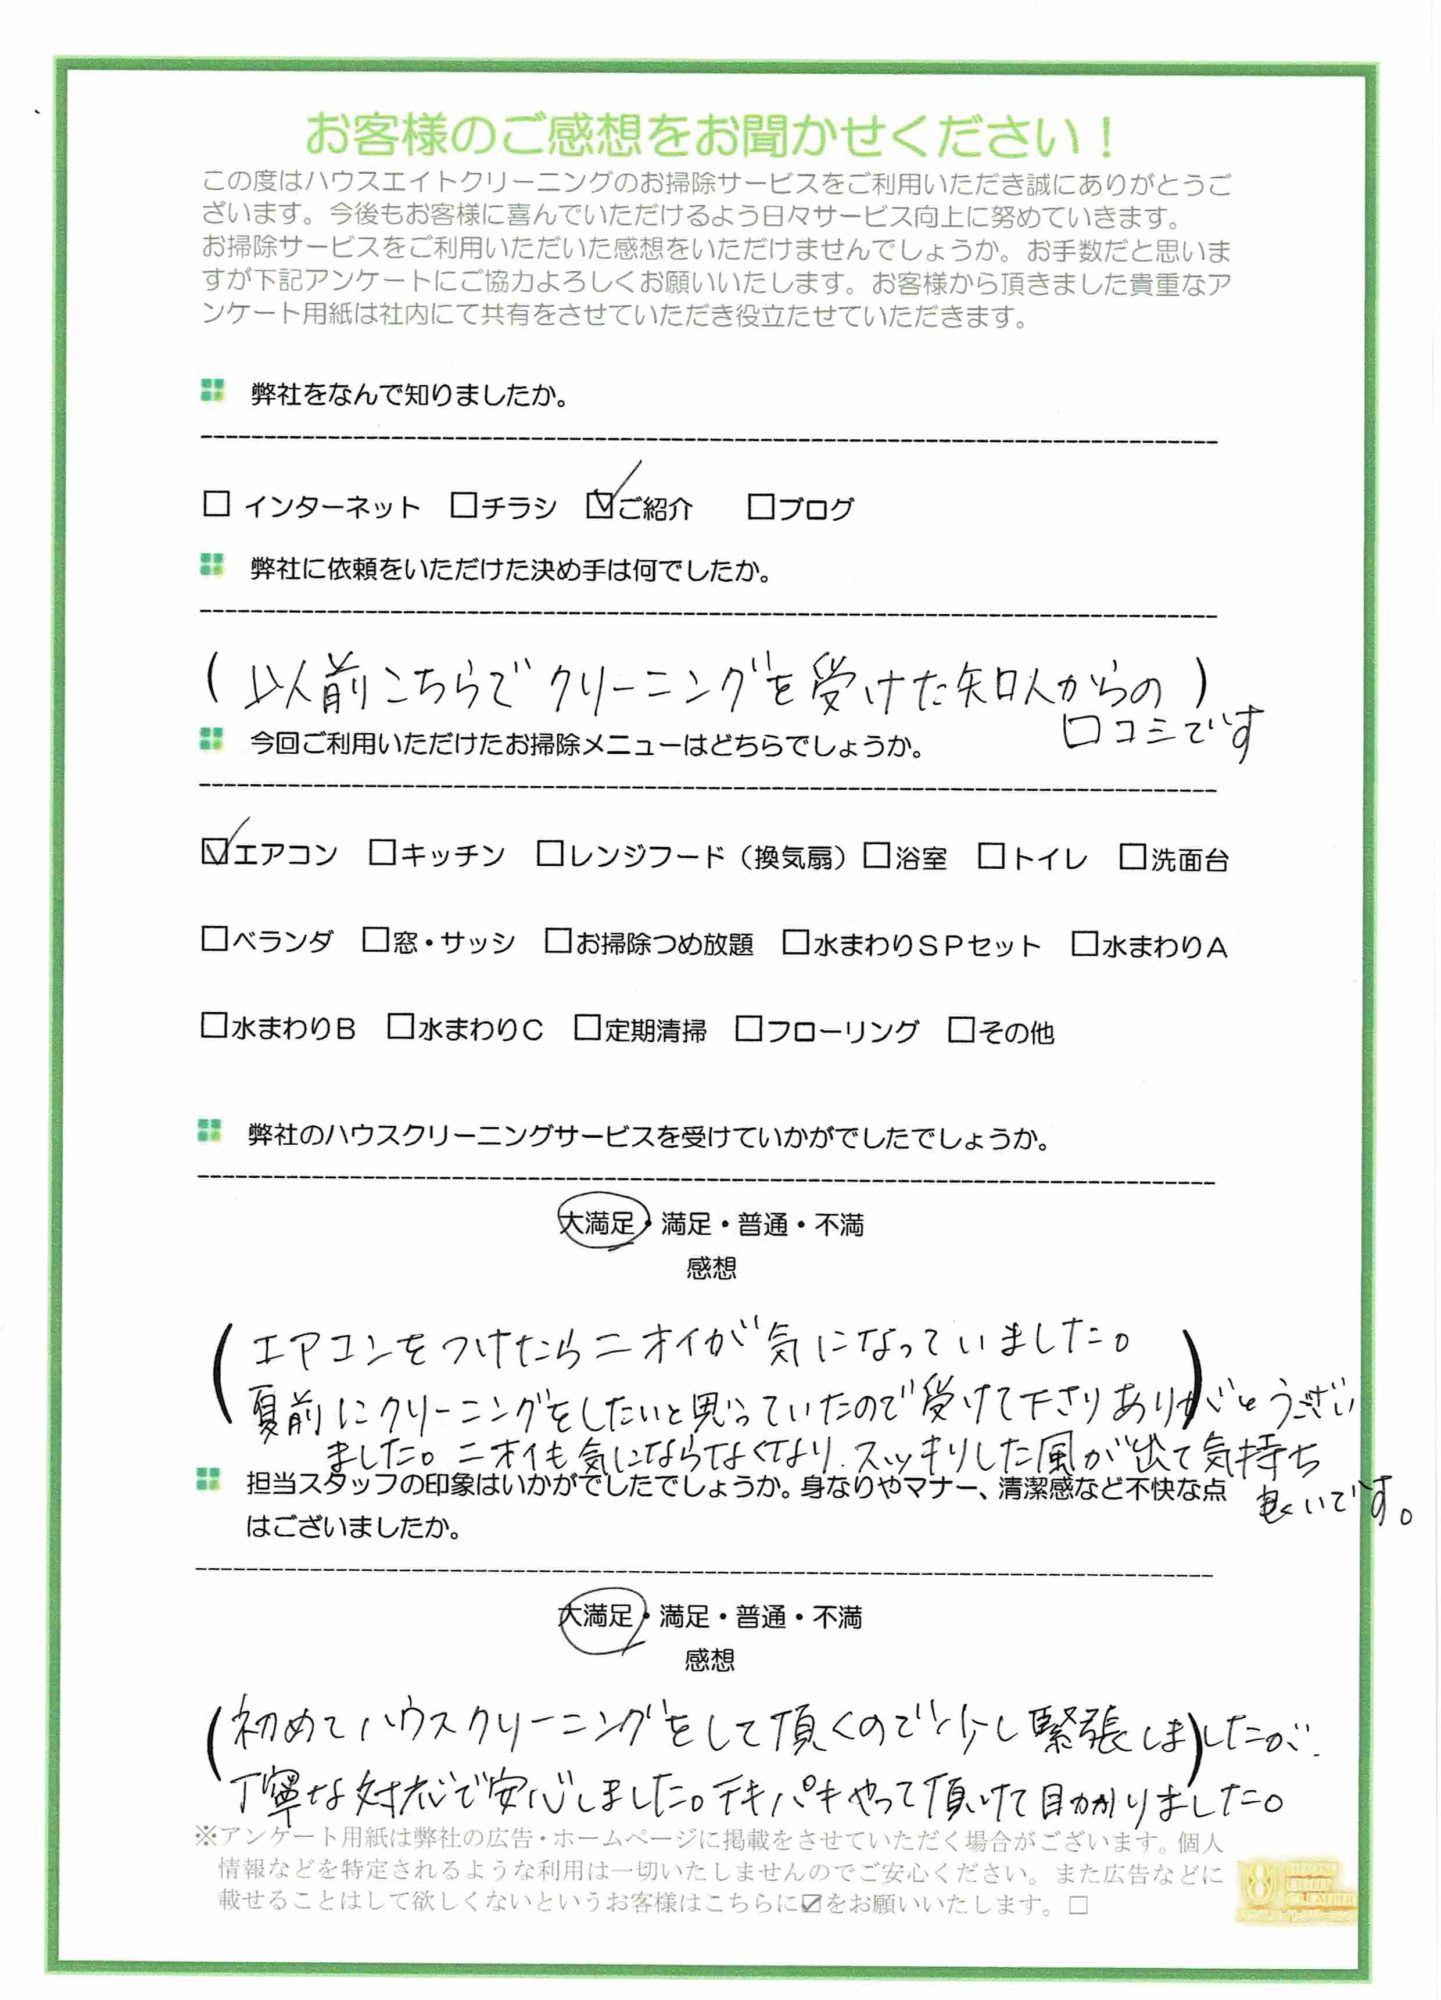 お客様のご感想をお聞かせください！
この度はハウスエイトクリーニングのお掃除サービスをご利用いただき誠にありがとうご
ざいます。今後もお客様に喜んでいただけるよう日々サービス向上に努めていきます。
お掃除サービスをご利用いただいた感想をいただけませんでしょうか。お手数だと思いま
すが下記アンケートにご協力よろしくお願いいたします。お客様から頂きました貴重なア
ンケート用紙は社内にて共有をさせていただき役立たせていただきます。
弊社をなんで知りましたか。
□ インターネット □チラシ ☑ご紹介 □ブログ
弊社に依頼をいただけた決め手は何でしたか。
（以前こちらでクリーニングを受けた知人からの）
口コミです
今回ご利用いただけたお掃除メニューはどちらでしょうか。
☑エアコン □キッチン □レンジフード（換気扇）□浴室 □トイレ □洗面台
□ベランダ □窓・サッシ □お掃除つめ放題 □水まわりＳＰセット □水まわりＡ
□水まわりＢ □水まわりＣ □定期清掃 □フローリング □その他
弊社のハウスクリーニングサービスを受けていかがでしたでしょうか。
大満足・満足・普通・不満
感想
（エアコンをつけたらニオイが気になっていました。
夏前にクリーニングをしたいと思っていたので受けて下さりありがとうござい）
ました。ニオイも気にならなくなり、スッキリした風が出て気持ち
良いです。
担当スタッフの印象はいかがでしたでしょうか。身なりやマナー、清潔感など不快な点
はございましたか。
大満足・満足・普通・不満
感想
（初めてハウスクリーニングをして頂くので少し緊張しましたが、
丁寧な対応で安心しました。テキパキやって頂けて助かりました。）
※アンケート用紙は弊社の広告・ホームページに掲載をさせていただく場合がございます。個人
情報などを特定されるような利用は一切いたしませんのでご安心ください。また広告などに
載せることはして欲しくないというお客様はこちらに☑をお願いいたします。□